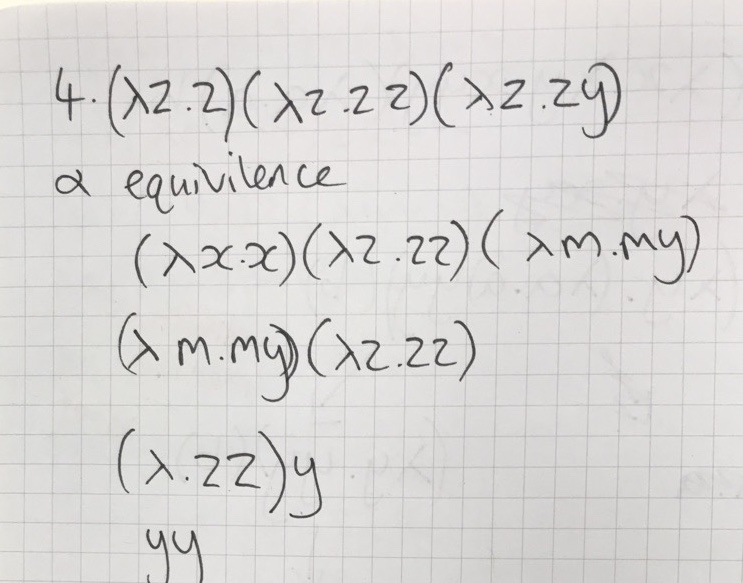 4. (λz.z)(λz.zz)(λz.zy)
α equivilence
(λx.x)(λz.zz)(λm.my)
(λm.my)(λz.zz)
(λ.zz)y
yy